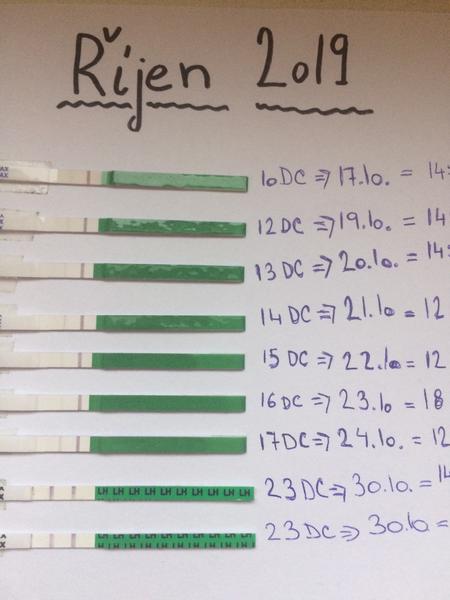 Říjen 2019
10DC ⇒ 17.10. = 14:
12DC ⇒ 19.10. = 14
13DC ⇒ 20.10. = 14:
14DC ⇒ 21.10 = 12
15DC ⇒ 22.10 = 12
16DC ⇒ 23.10 = 18
17DC ⇒ 24.10. = 12
LH LH LH LH LH LH LH LH LH LH
23DC ⇒ 30.10. = 14
23DC ⇒ 30.10 =